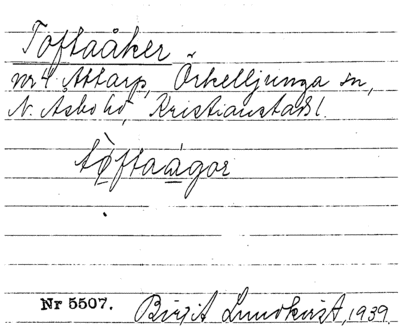 Toftaåker
nr 4 Attarp, Örkelljunga sn,
N. Åsbo hd, Kristianstads l.
tòftaågor
Nr 5507. Birgit Lundkvist, 1939.